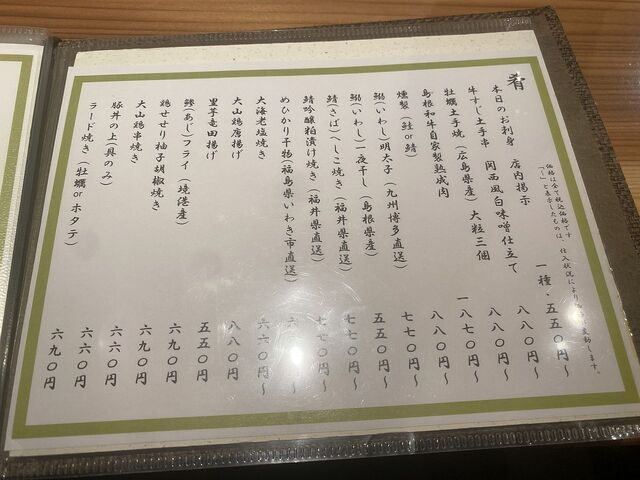 肴
価格は全て税込価格です
「~」と表示したものは、仕入状況により変動します。
本日のお刺身 店内掲示 一種・五五〇円~
牛すじ土手串 関西風白味噌仕立て 八八〇円~
牡蠣土手焼(広島県産)大粒三個 八八〇円~
島根和牛自家製熟成肉 一八七〇円~
燻製(鮭or鯖) 八八〇円~
鰯(いわし)明太子(九州博多直送) 七七〇円~
鰯(いわし)一夜干し(島根県産) 五五〇円~
鯖(さば)へしこ焼き(福井県直送) 七七〇円~
鯖吟醸粕漬け焼き(福井県直送) 七七〇円~
めひかり干物(福島県いわき市直送) 六 円~
大海老塩焼き 六六〇円~
大山鶏唐揚げ 八八〇円
里芋竜田揚げ 五五〇円
鯵(あじ)フライ(境港産) 六九〇円
鶏せせり柚子胡椒焼き 六九〇円
大山鶏串焼き 六九〇円
豚丼の上(具のみ) 六六〇円
ラード焼き(牡蠣orホタテ) 六九〇円